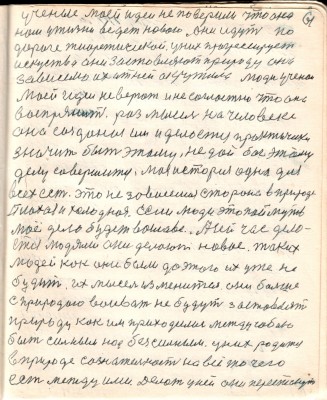 ученые моей идеи не поверили что она
нашу жизнь ведет нового. они идут по
дороге теоретической. у них прогрессирует
искусство они заставляют природу она
зависимо их этней люди учена
моей идеи не верят и не согласны что она
воспрянит. раз мысль на человека
она создана им и делается практически
значит быть этому. не дай бог этому
делу совершить. моя история одна для
всех ест. это не зависимая сторона в природе
плохая и холодная. если люди это поймут
мое дело будет во славе. А мой час дело
стал людями они делают новое. таких
людей как они были до этого их уже не
будит. их мысль изменится они больше
с природою воевать не будут заставлят
природу как им приходилось между собою
быть сильным над безсильным. у них родится
в природе сознательность на все то чего
ест между ими делат у ней они перестанут